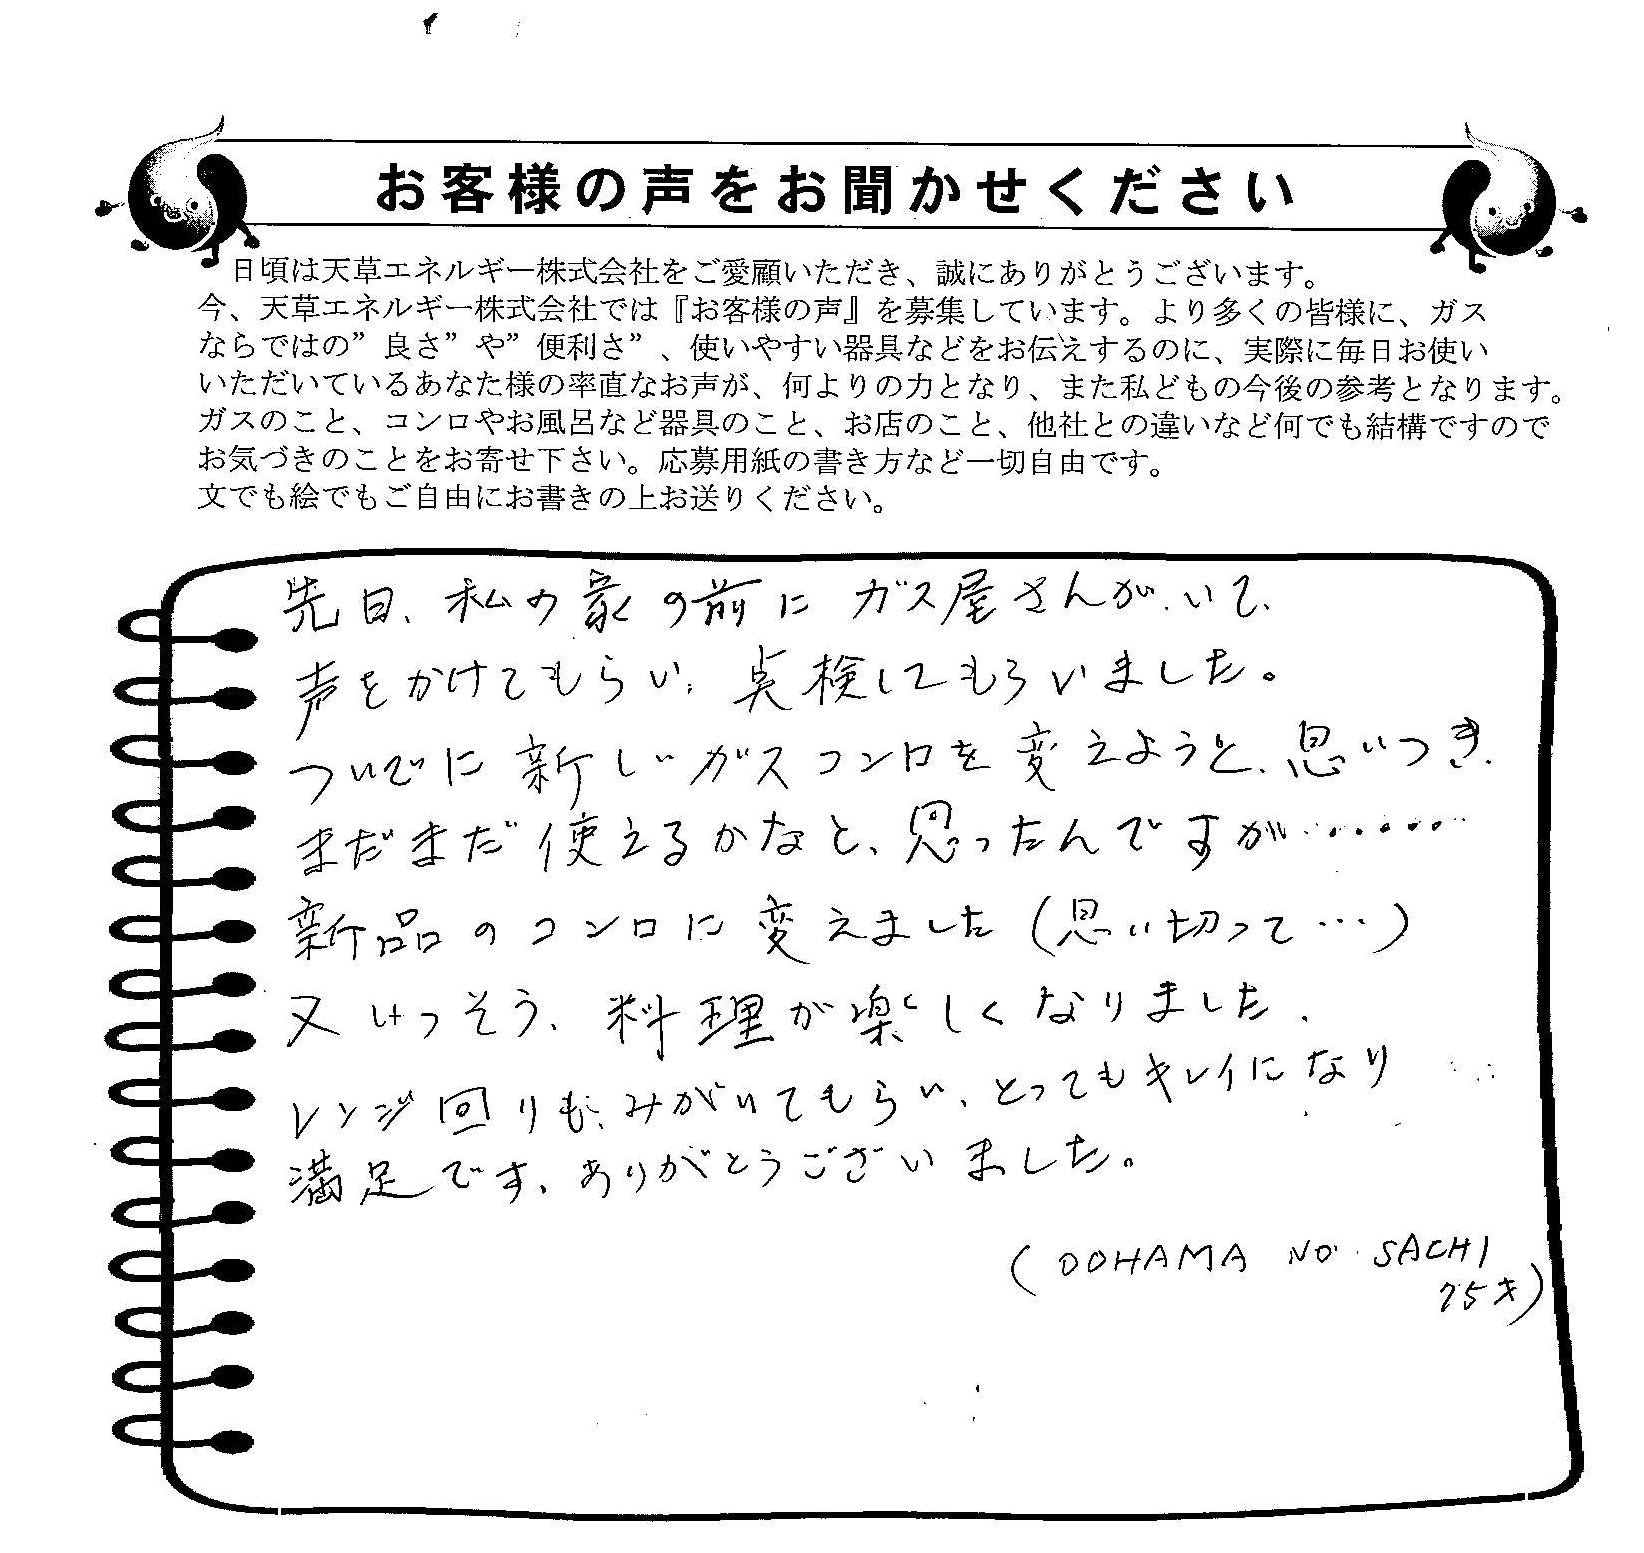 お客様の声をお聞かせください
日頃は天草エネルギー株式会社をご愛顧いただき、誠にありがとうございます。
今、天草エネルギー株式会社では『お客様の声』を募集しています。より多くの皆様に、ガス
ならではの”良さ”や”便利さ”、使いやすい器具などをお伝えするのに、実際に毎日お使い
いただいているあなた様の率直なお声が、何よりの力となり、また私どもの今後の参考となります。
ガスのこと、コンロやお風呂など器具のこと、お店のこと、他社との違いなど何でも結構ですので
お気づきのことをお寄せ下さい。応募用紙の書き方など一切自由です。
文でも絵でもご自由にお書きの上お送りください。
先日、私の家の前にガス屋さんが、いて、
声をかけてもらい、点検してもらいました。
ついでに新しいガスコンロを変えようと、思いつき、
まだまだ使えるかなと、思ったんですが……
新品のコンロに変えました(思い切って…)
又いっそう、料理が楽しくなりました、
レンジ回りも、みがいてもらい、とってもキレイになり
満足です、ありがとうございました。
(OOHAMA NO SACHI
75才)